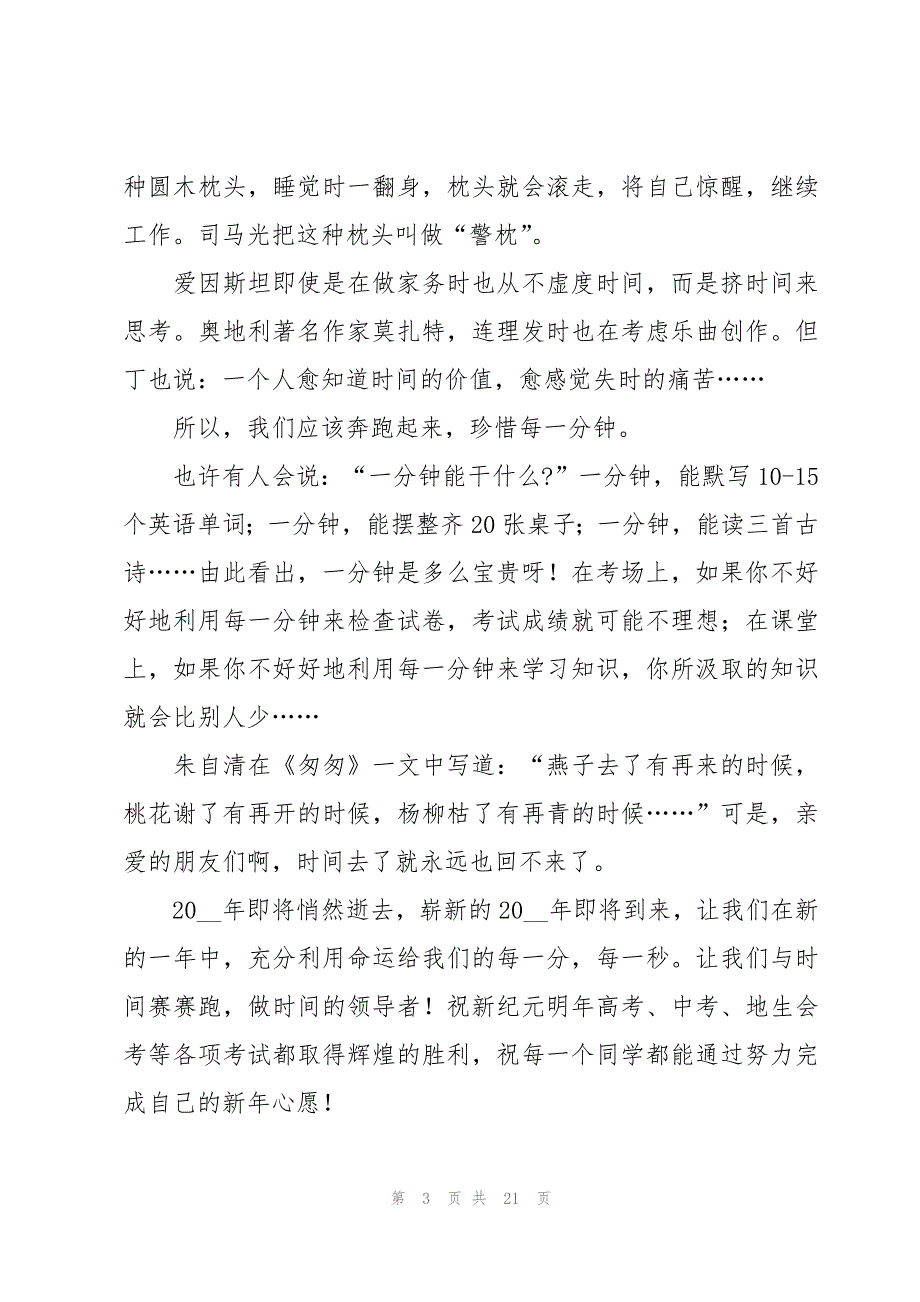 种圆木枕头，睡觉时一翻身，枕头就会滚走，将自己惊醒，继续
工作。司马光把这种枕头叫做“警枕”。
爱因斯坦即使是在做家务时也从不虚度时间，而是挤时间来
思考。奥地利著名作家莫扎特，连理发时也在考虑乐曲创作。但
丁也说：一个人愈知道时间的价值，愈感觉失时的痛苦……
所以，我们应该奔跑起来，珍惜每一分钟。
也许有人会说：“一分钟能干什么?”一分钟，能默写 10-15
个英语单词；一分钟，能摆整齐 20 张桌子；一分钟，能读三首古
诗……由此看出，一分钟是多么宝贵呀！在考场上，如果你不好
好地利用每一分钟来检查试卷，考试成绩就可能不理想；在课堂
上，如果你不好好地利用每一分钟来学习知识，你所汲取的知识
就会比别人少……
朱自清在《匆匆》一文中写道：“燕子去了有再来的时候，
桃花谢了有再开的时候，杨柳枯了有再青的时候……”可是，亲
爱的朋友们啊，时间去了就永远也回不来了。
20__年即将悄然逝去，崭新的 20__年即将到来，让我们在新
的一年中，充分利用命运给我们的每一分，每一秒。让我们与时
间赛赛跑，做时间的领导者！祝新纪元明年高考、中考、地生会
考等各项考试都取得辉煌的胜利，祝每一个同学都能通过努力完
成自己的新年心愿！
第 3 页 共 21 页